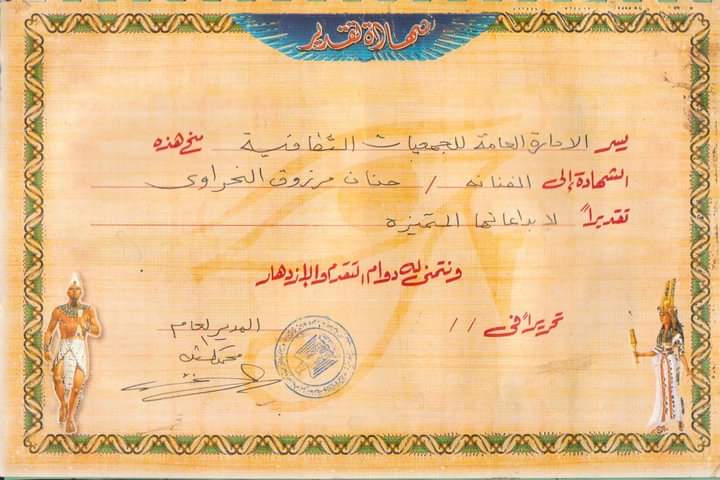 شهادة تقدير
يسر الادارة العامة للجمعيات الثقافية منح هذه
الشهادة إلى الفنانه / حنان مرزوق النحراوى
تقديراً لابداعاتها المتميزه
ونتمنى له دوام التقدم والإزدهار
تحريراً فى / /
المدير العام
محمد